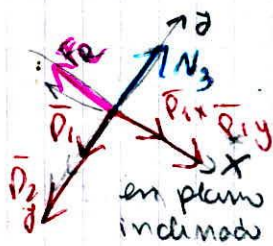 y
F_R N_3
P̄_1 P̄_1x P̄_1y
P̄_2 y X
en plano
inclinado